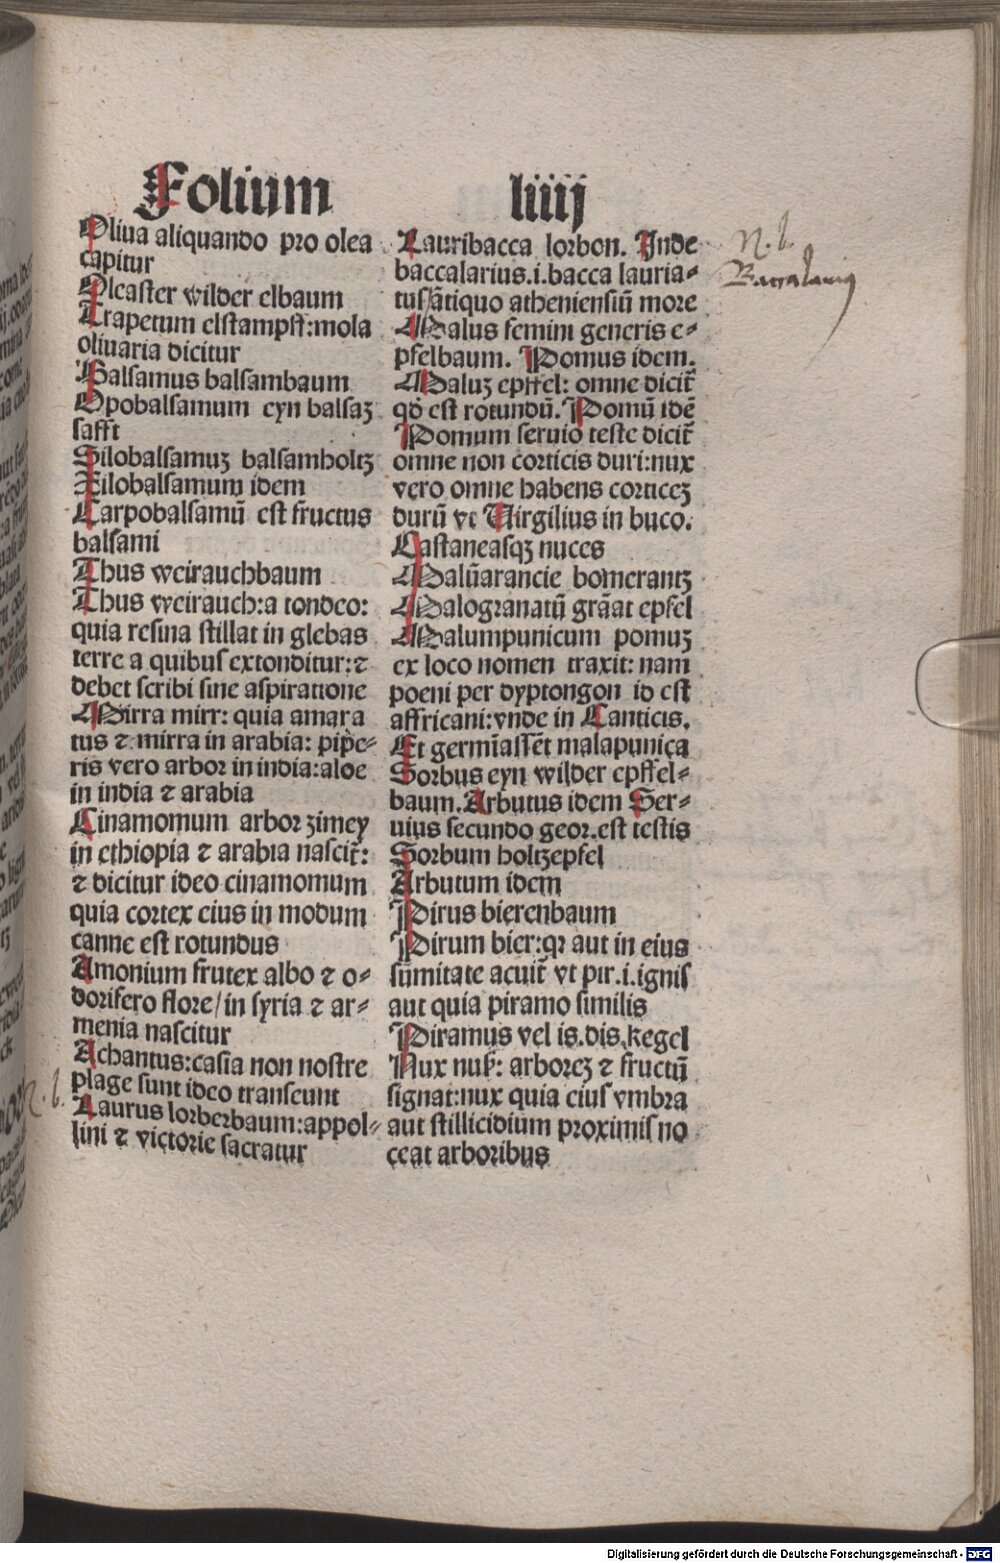 Folium liiij
Oliua aliquando pro olea
capitur
Oleaster wilder elbaum
Trapetum elstampff: mola
oliuaria dicitur
Balsamus balsambaum
Opobalsamum eyn balsaꝫ
safft
Silobalsamuꝫ balsamholtz
Xilobalsamum idem
Carpobalsamū est fructus
balsami
Thus weirauchbaum
Thus weirauch: a tondeo:
quia resina stillat in glebas
terre a quibus extonditur: ⁊
debet scribi sine aspiratione
Mirra mirr: quia amara
tus ⁊ mirra in arabia: pipe⸗
ris vero arbor in india: aloe
in india ⁊ arabia
Cinamomum arbor zimey
in ethiopia ⁊ arabia nascit̄:
⁊ dicitur ideo cinamomum
quia cortex eius in modum
canne est rotundus
Amonium frutex albo ⁊ o⸗
dorifero flore/ in syria ⁊ ar⸗
menia nascitur
Achantus: casia non nostre
plage sunt ideo transeunt
Laurus lorberbaum: appol⸗
lini ⁊ victorie sacratur
Lauribacca lorbon. Inde
baccalarius .i. bacca lauria⸗
tus/ātiquo atheniensiū more
Malus femini generis e⸗
pfelbaum. Pomus idem.
Maluꝫ epffel: omne dicit̄
qd̄ est rotundū. Pomū idē
Pomum seruio teste dicit̄
omne non corticis duri: nux
vero omne habens corticeꝫ
durū vt Uirgilius in buco.
Castaneasqꝫ nuces
Malūarancie bomerantz
Malogranatū grāat epfel
Malumpunicum pomuꝫ
ex loco nomen traxit: nam
poeni per dyptongon id est
affricani: vnde in Canticis.
Et germīassēt malapunica
Sorbus eyn wilder epffel⸗
baum. Arbutus idem Ser⸗
uius secundo geor. est testis
Sorbum holtzepfel
Arbutum idem
Pirus bierenbaum
Pirum bier: qꝛ aut in eius
sūmitate acuit̄ vt pir .i. ignis
aut quia piramo similis
Piramus vel is. dis. kegel
Nux nuß: arboreꝫ ⁊ fructū
signat: nux quia eius vmbra
aut stillicidium proximis no
ceat arboribus
N. b.
Baccalarius
N. b.
Digitalisierung gefördert durch die Deutsche Forschungsgemeinschaft - DFG